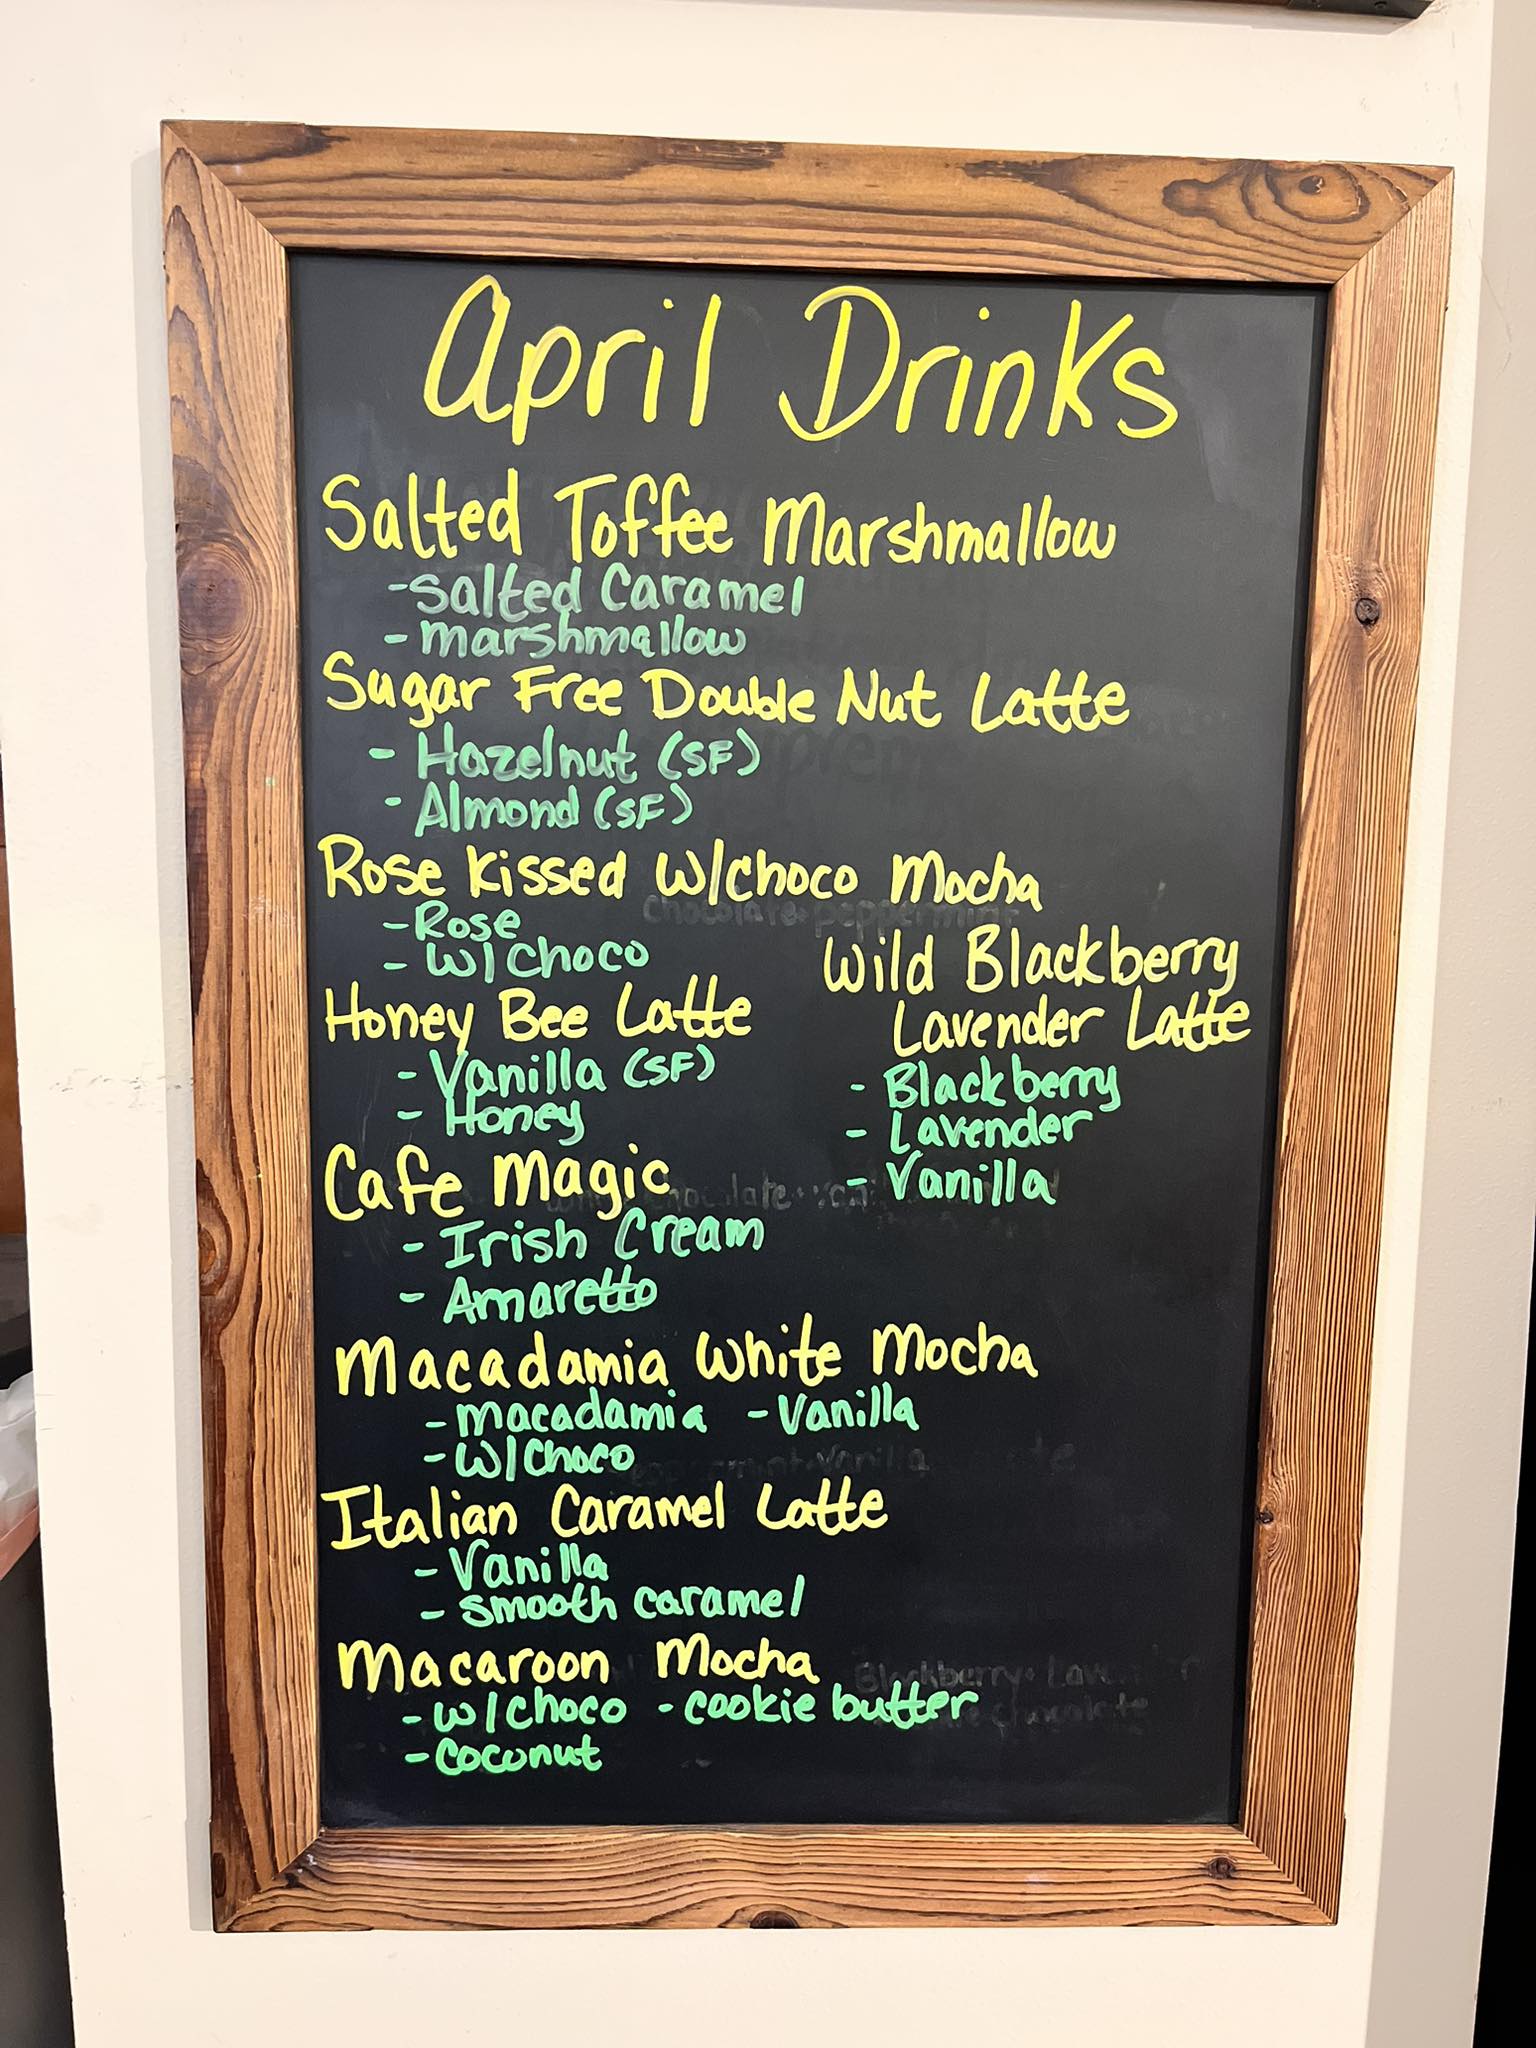 April Drinks
Salted Toffee Marshmallow
- Salted Caramel
- marshmallow
Sugar Free Double Nut Latte
- Hazelnut (SF)
- Almond (SF)
Rose Kissed W/Choco Mocha
- Rose
- W/Choco
Honey Bee Latte
- Vanilla (SF)
- Honey
Wild Blackberry
Lavender Latte
- Blackberry
- Lavender
- Vanilla
Cafe Magic
- Irish Cream
- Amaretto
Macadamia White Mocha
- Macadamia - Vanilla
- W/Choco
Italian Caramel Latte
- Vanilla
- smooth caramel
Macaroon Mocha
- W/Choco - cookie butter
- coconut